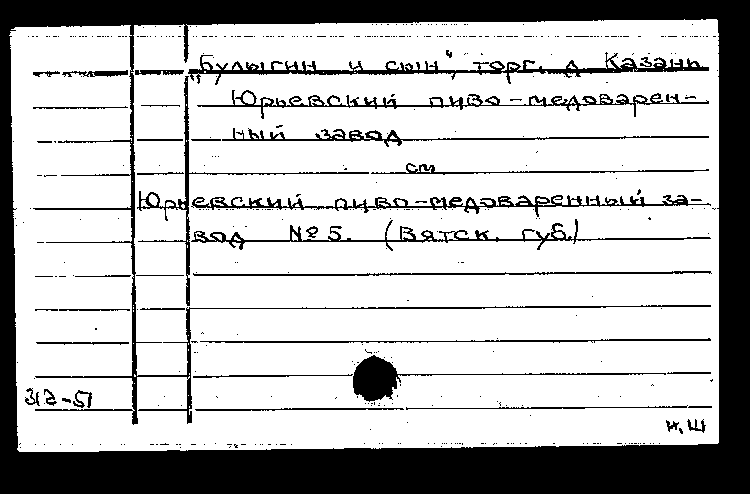 „Булыгин и сын", торг. д. Казань
Юрьевский пиво-медоварен-
ный завод
см
Юрьевский пиво-медоваренный за-
вод №5. (Вятск. губ.)
312-51
Н.Ш